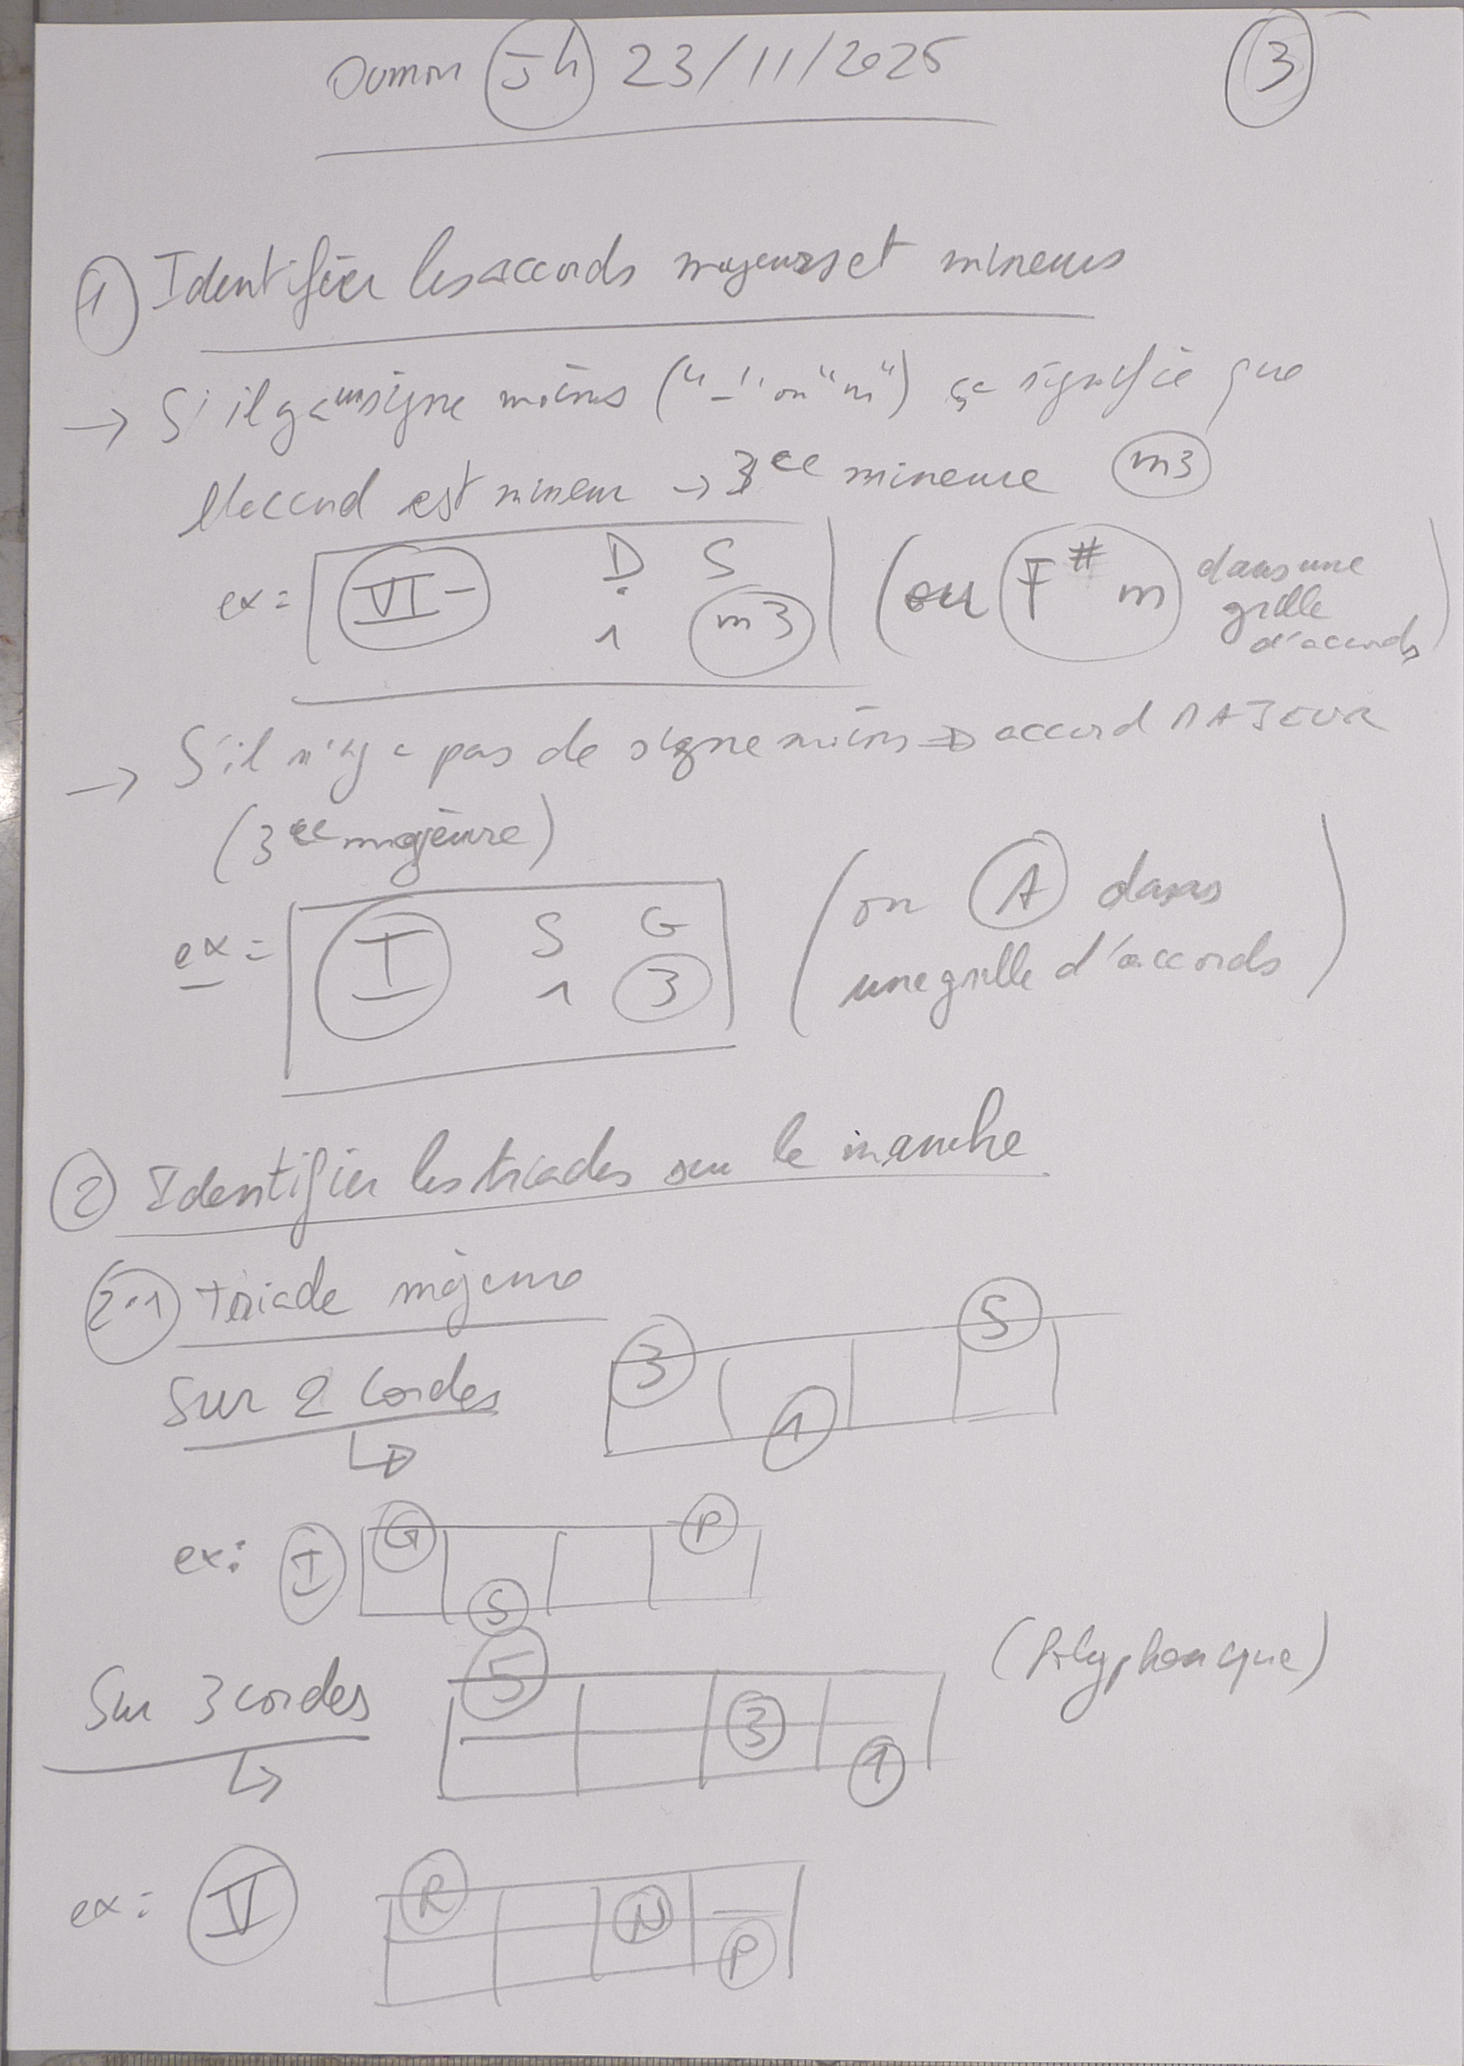 5h 23/11/2025
3
1 Identifier les accords majeurs et mineurs
→ Si il y a un signe moins ("-" ou "m") ça signifie que
l'accord est mineur → 3ce mineure m3
ex = VI- D S
1 m3
(ou F# m dans une
grille
d'accords)
→ S'il n'y a pas de signe moins ⇒ accord MAJEUR
(3ce majeure)
ex = I S G
1 3
(ou A dans
une grille d'accords)
2 Identifier les triades sur le manche
2.1 triade majeure
Sur 2 cordes
3 5
1
ex: I G P
S
Sur 3 cordes
(Polyphonique)
5
3
1
ex: V R
N
P